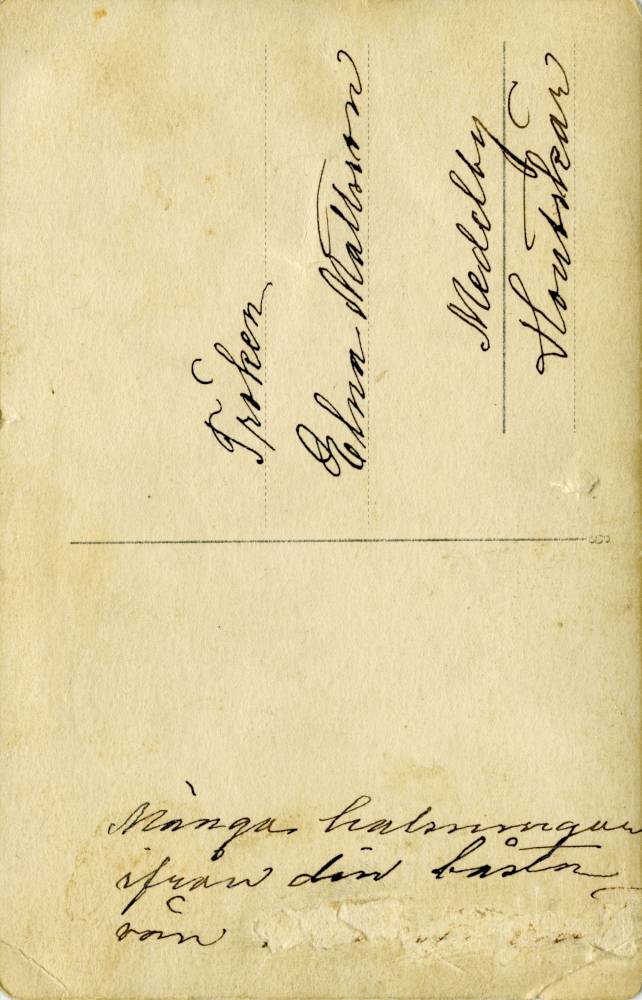 Fröken
Elna Mattsson
Medelby
Houtskär
Många halsningar
ifrån din bästa
vän